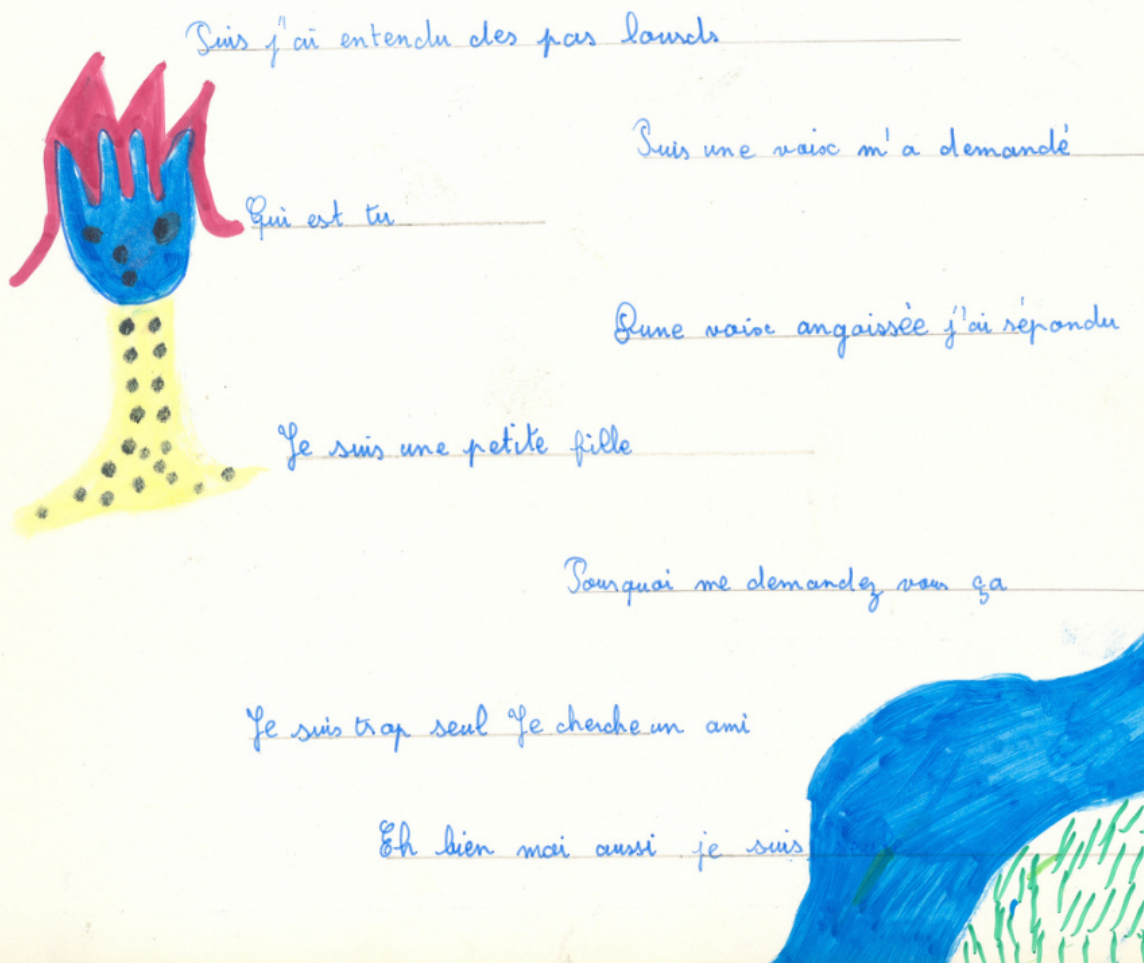 Puis j'ai entendu des pas lourds
Puis une voix m'a demandé
Qui est tu
D'une voix angoissée j'ai répondu
Je suis une petite fille
Pourquoi me demandez vous ça
Je suis trop seul Je cherche un ami
Eh bien moi aussi je suis seule